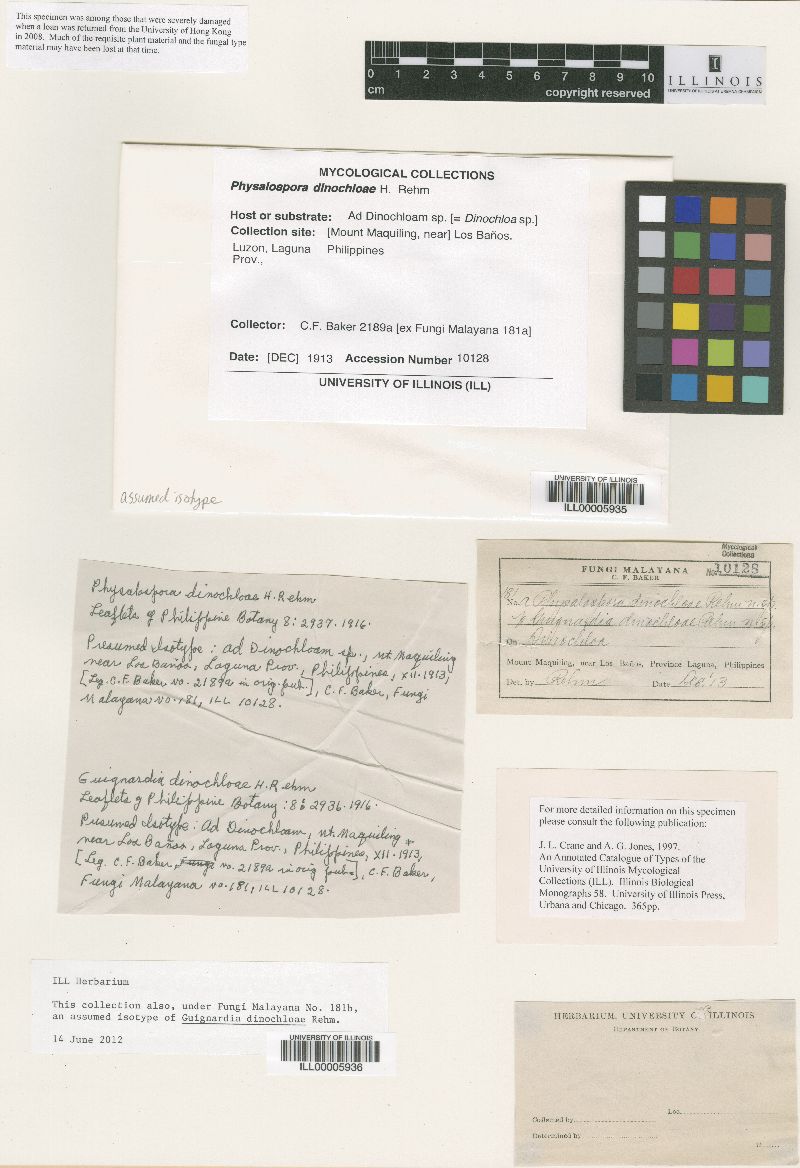 This specimen was among those that were severely damaged
when a loan was returned from the University of Hong Kong
in 2008. Much of the requisite plant material and the fungal type
material may have been lost at that time.
0 1 2 3 4 5 6 7 8 9 10
cm
copyright reserved
I
ILLINOIS
UNIVERSITY OF ILLINOIS AT URBANA-CHAMPAIGN
MYCOLOGICAL COLLECTIONS
Physalospora dinochloae H. Rehm
Host or substrate: Ad Dinochloam sp. [= Dinochloa sp.]
Collection site: [Mount Maquiling, near] Los Baños.
Luzon, Laguna Philippines
Prov.,
Collector: C.F. Baker 2189a [ex Fungi Malayana 181a]
Date: [DEC] 1913 Accession Number 10128
UNIVERSITY OF ILLINOIS (ILL)
assumed isotype
UNIVERSITY OF ILLINOIS
ILL00005935
Physalospora dinochloae H. Rehm
Leaflets of Philippine Botany 8: 2937. 1916.
Presumed Isotype: ad Dinochloam sp., Mt. Maquiling
near Los Baños, Laguna Prov., Philippines, XII. 1913,
[Leg. C.F. Baker no. 2189a in orig. pub.], C.F. Baker, Fungi
Malayana no. 181, ILL 10128.
Guignardia dinochloae H. Rehm
Leaflets of Philippine Botany: 8: 2936. 1916.
Presumed Isotype: Ad Dinochloam, Mt. Maquiling
near Los Baños, Laguna Prov., Philippines, XII. 1913,
[Leg. C.F. Baker, Fungi no. 2189a in orig. pub.], C.F. Baker,
Fungi Malayana no. 181, ILL 10128.
Mycological
Collections
No. 10128
FUNGI MALAYANA
C. F. BAKER
No. 181 a Physalospora dinochloae Rehm n. sp.
b Guignardia dinochloae Rehm n. sp.
On Dinochloa
Mount Maquiling, near Los Baños, Province Laguna, Philippines
Det. by Rehm Date Dec '13
For more detailed information on this specimen
please consult the following publication:
J. L. Crane and A. G. Jones, 1997.
An Annotated Catalogue of Types of the
University of Illinois Mycological
Collections (ILL). Illinois Biological
Monographs 58. University of Illinois Press,
Urbana and Chicago. 365pp.
ILL Herbarium
This collection also, under Fungi Malayana No. 181b,
an assumed isotype of Guignardia dinochloae Rehm.
14 June 2012
UNIVERSITY OF ILLINOIS
ILL00005936
HERBARIUM, UNIVERSITY OF ILLINOIS
DEPARTMENT OF BOTANY
Loc.
Collected by
Determined by